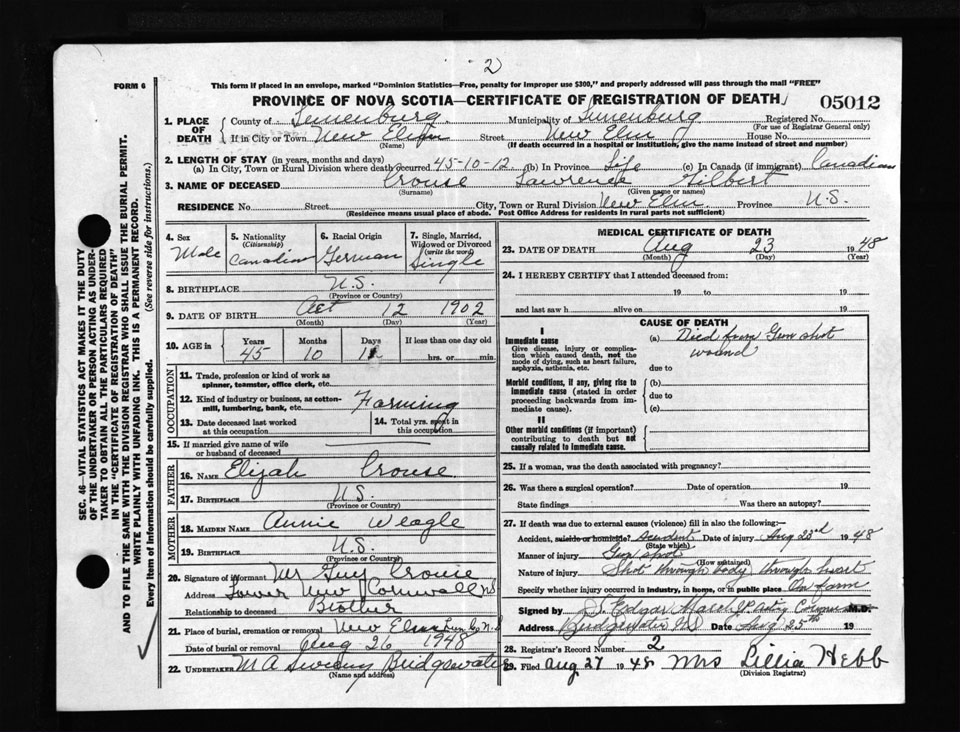 2
FORM 6
This form if placed in an envelope, marked "Dominion Statistics—Free, penalty for improper use $300," and properly addressed will pass through the mail "FREE"
PROVINCE OF NOVA SCOTIA—CERTIFICATE OF REGISTRATION OF DEATH
05012
1. PLACE OF DEATH
County of Lunenburg Municipality of Lunenburg Registered No.
(For use of Registrar General only)
If in City or Town New Elm Street New Elm House No.
(Name) (If death occurred in a hospital or institution, give the name instead of street and number)
2. LENGTH OF STAY (in years, months and days)
(a) In City, Town or Rural Division where death occurred 45-10-12 (b) In Province Life (c) In Canada (if immigrant) Canadian
3. NAME OF DECEASED Crouse Lawrence Gilbert
(Surname) (Given name or names)
RESIDENCE No. Street City, Town or Rural Division New Elm Province N.S.
(Residence means usual place of abode. Post Office Address for residents in rural parts not sufficient)
4. Sex Male
5. Nationality (Citizenship) Canadian
6. Racial Origin German
7. Single, Married, Widowed or Divorced (write the word) Single
8. BIRTHPLACE N.S.
(Province or Country)
9. DATE OF BIRTH Oct 12 1902
(Month) (Day) (Year)
10. AGE in Years Months Days If less than one day old
45 10 11 hrs. or min.
OCCUPATION
11. Trade, profession or kind of work as spinner, teamster, office clerk, etc.
12. Kind of industry or business, as cotton-mill, lumbering, bank, etc. Farming
13. Date deceased last worked at this occupation
14. Total yrs. spent in this occup'n
15. If married give name of wife or husband of deceased
FATHER
16. NAME Elijah Crouse
17. BIRTHPLACE N.S.
(Province or Country)
MOTHER
18. MAIDEN NAME Annie Weagle
19. BIRTHPLACE N.S.
(Province or Country)
20. Signature of informant Mr Guy Crouse
Address Lower New Cornwall NS
Relationship to deceased Brother
21. Place of burial, cremation or removal New Elm Lun Co N.S
Date of burial or removal Aug 26 1948
22. UNDERTAKER M A Sweeny Bridgewater
(Name and address)
MEDICAL CERTIFICATE OF DEATH
23. DATE OF DEATH Aug 23 1948
(Month) (Day) (Year)
24. I HEREBY CERTIFY that I attended deceased from:
19 to 19
and last saw h alive on 19
CAUSE OF DEATH
I
Immediate cause (a) Died from Gun shot wound
Give disease, injury or complication which caused death, not the mode of dying, such as heart failure, asphyxia, asthenia, etc.
due to
Morbid conditions, if any, giving rise to immediate cause (stated in order proceeding backwards from immediate cause).
(b)
due to
(c)
II
Other morbid conditions (if important) contributing to death but not causally related to immediate cause.
25. If a woman, was the death associated with pregnancy?
26. Was there a surgical operation? Date of operation 19
State findings Was there an autopsy?
27. If death was due to external causes (violence) fill in also the following:—
Accident, suicide or homicide? Accident Date of injury Aug 23rd 1948
(State which)
Manner of injury Gun shot
(How sustained)
Nature of injury Shot through body through heart
Specify whether injury occurred in industry, in home, or in public place On farm
Signed by S. Edgar March M.D.
Address Bridgewater NS Date Aug 25th 19
28. Registrar's Record Number 2
29. Filed Aug 27 1948 Mrs Lillia Hebb
(Division Registrar)
SEC. 46—VITAL STATISTICS ACT MAKES IT THE DUTY
OF THE UNDERTAKER OR PERSON ACTING AS UNDERTAKER TO OBTAIN ALL THE PARTICULARS REQUIRED
IN THE "CERTIFICATE OF REGISTRATION OF DEATH"
AND TO FILE THE SAME WITH THE DIVISION REGISTRAR WHO SHALL ISSUE THE BURIAL PERMIT.
WRITE PLAINLY WITH UNFADING INK. THIS IS A PERMANENT RECORD.
Every item of Information should be carefully supplied. (See reverse side for instructions.)